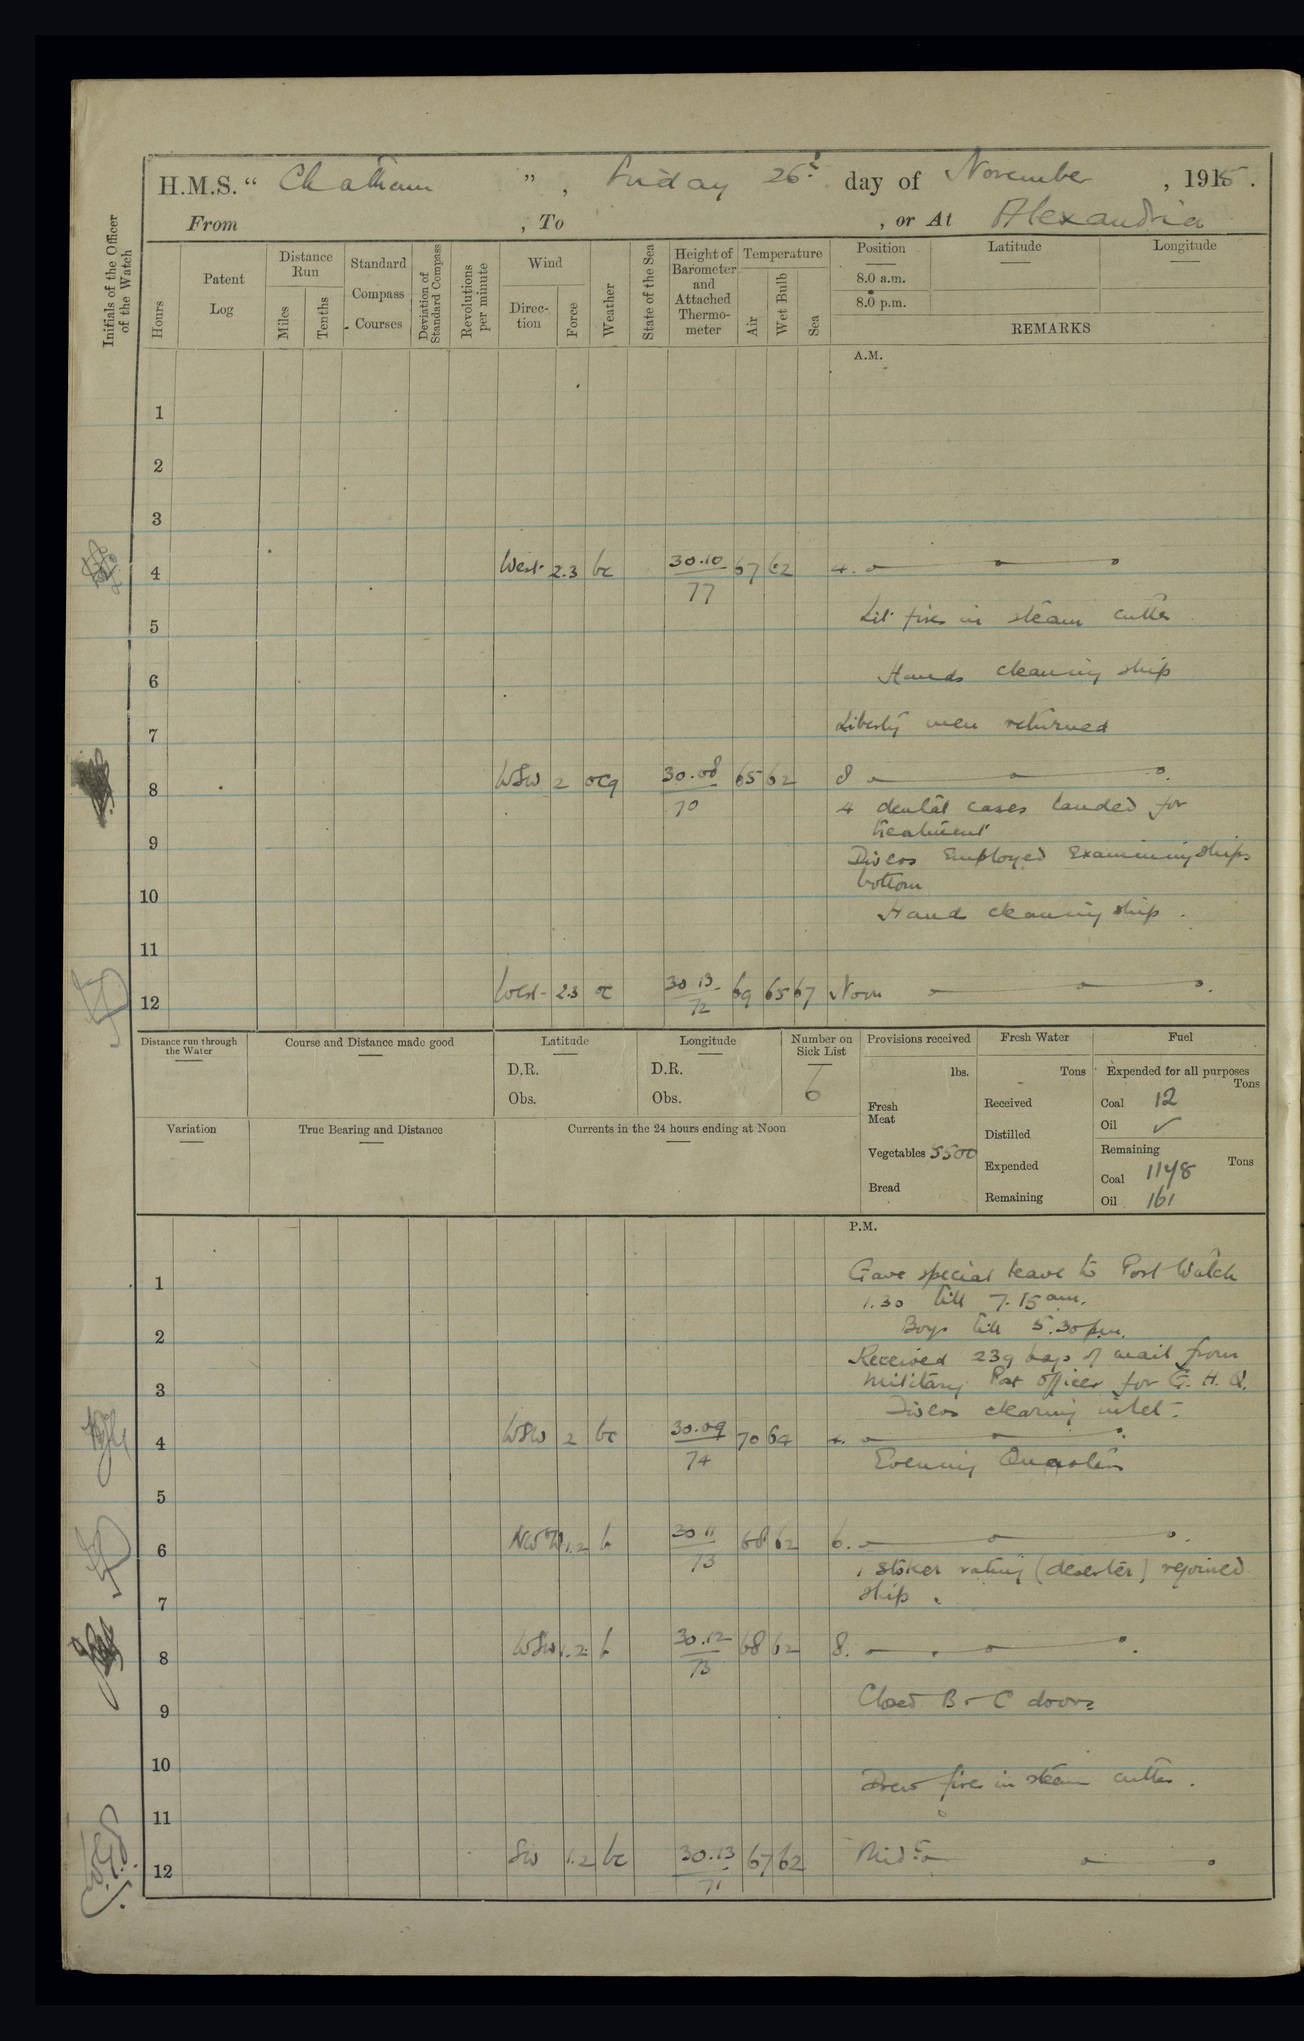 H.M.S. "Chatham", Friday 26th day of November, 1915.
From , To , or At Alexandria
Initials of the Officer of the Watch
Hours
Patent Log
Distance Run
Miles
Tenths
Standard Compass Courses
Deviation of Standard Compass
Revolutions per minute
Wind
Direction
Force
Weather
State of the Sea
Height of Barometer and Attached Thermometer
Temperature
Air
Wet Bulb
Sea
Position
8.0 a.m.
8.0 p.m.
Latitude
Longitude
REMARKS
A.M.
1
2
3
4 West 2.3 bc 30.10 67 62 4.
77
5 Lit fires in steam cutter
6 Hands cleaning ship
7 Liberty men returned
8 WSW 2 ocq 30.08 65 62 8
70
4 dental cases landed for
treatment
9 Divers Employed Examining ships
bottom
10 Hand cleaning ship.
11
12 West 2.3 oc 30.13 69 65 67 Noon
72
Distance run through the Water
Course and Distance made good
Latitude
D.R.
Obs.
Longitude
D.R.
Obs.
Number on Sick List
6
Provisions received
lbs.
Fresh Meat
Vegetables 5500
Bread
Fresh Water
Tons
Received
Distilled
Expended
Remaining
Fuel
Expended for all purposes
Tons
Coal 12
Oil ✓
Remaining
Tons
Coal 1148
Oil 161
Variation
True Bearing and Distance
Currents in the 24 hours ending at Noon
P.M.
1 Gave special leave to Port Watch
1.30 till 7.15 am.
2 Boys till 5.30 p.m.
Received 239 bags of mail from
3 Military Post Officer for G.H.Q.
Divers clearing inlet.
4 WSW 2 bc 30.09 70 64 4.
74
Evening Quarters
5
6 NW'W 1.2 b 30 11 68 62 6.
73
1 Stoker rating (deserter) rejoined
7 ship.
8 WSW 1.2 b 30.12 68 62 8.
73
9 Closed B & C doors
10 Drew fires in steam cutter.
11
12 SW 1.2 bc 30.13 67 62 Midt.
71